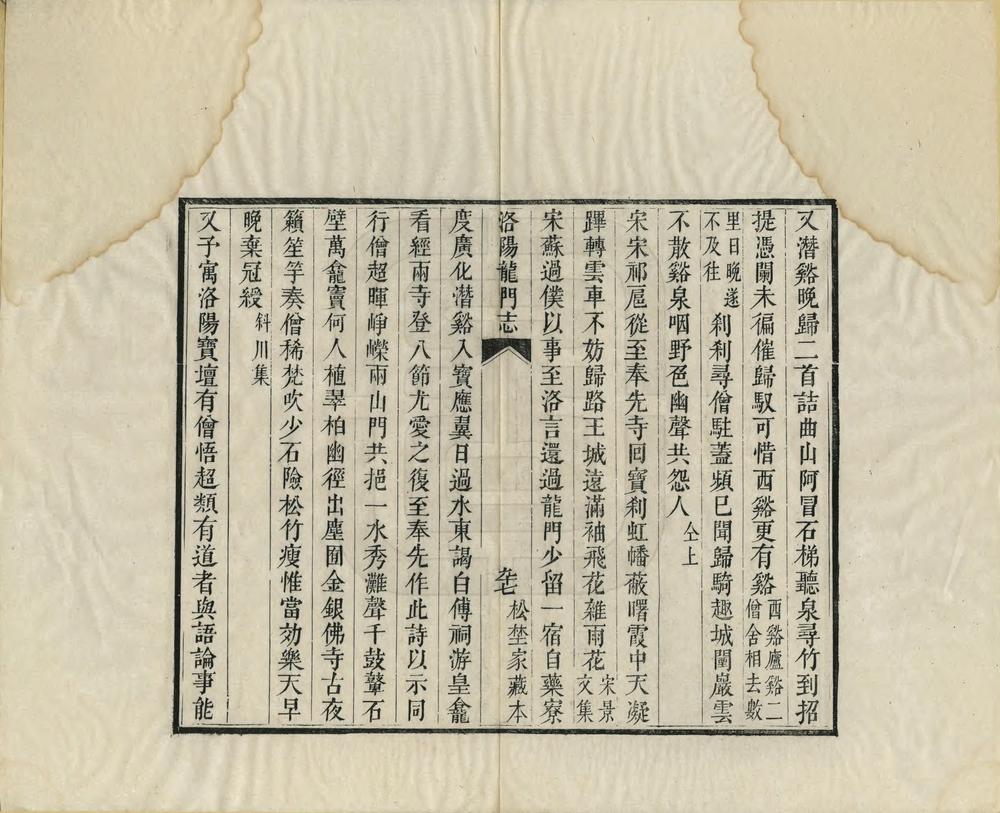 又潛谿晚歸二首詰曲山阿冒石梯聽泉尋竹到招
提憑闌未徧催歸馭可惜西谿更有谿西谿廬谿二僧舍相去數
里日晚遂不及往刹刹尋僧駐蓋頻巳聞歸騎趣城闉巖雲
不散谿泉咽野色幽聲共怨人仝上
宋宋祁扈從至奉先寺回寶刹虹幡蔽曙霞中天凝
蹕轉雲車不妨歸路王城遠滿袖飛花雜雨花宋景文集
宋蘇過僕以事至洛言還過龍門少留一宿自藥寮
洛陽龍門志
松埜家藏本
度廣化潛谿入寶應翼日過水東謁白傅祠游皇龕
看經兩寺登八節尤愛之復至奉先作此詩以示同
行僧超暉崢嶸兩山門共挹一水秀灘聲千鼓鼙石
壁萬龕竇何人植翠柏幽徑出塵囿金銀佛寺古夜
籟笙竽奏僧稀梵吹少石險松竹瘦惟當効樂天早
晚棄冠綬斜川集
又予寓洛陽寶壇有僧悟超類有道者與語論事能